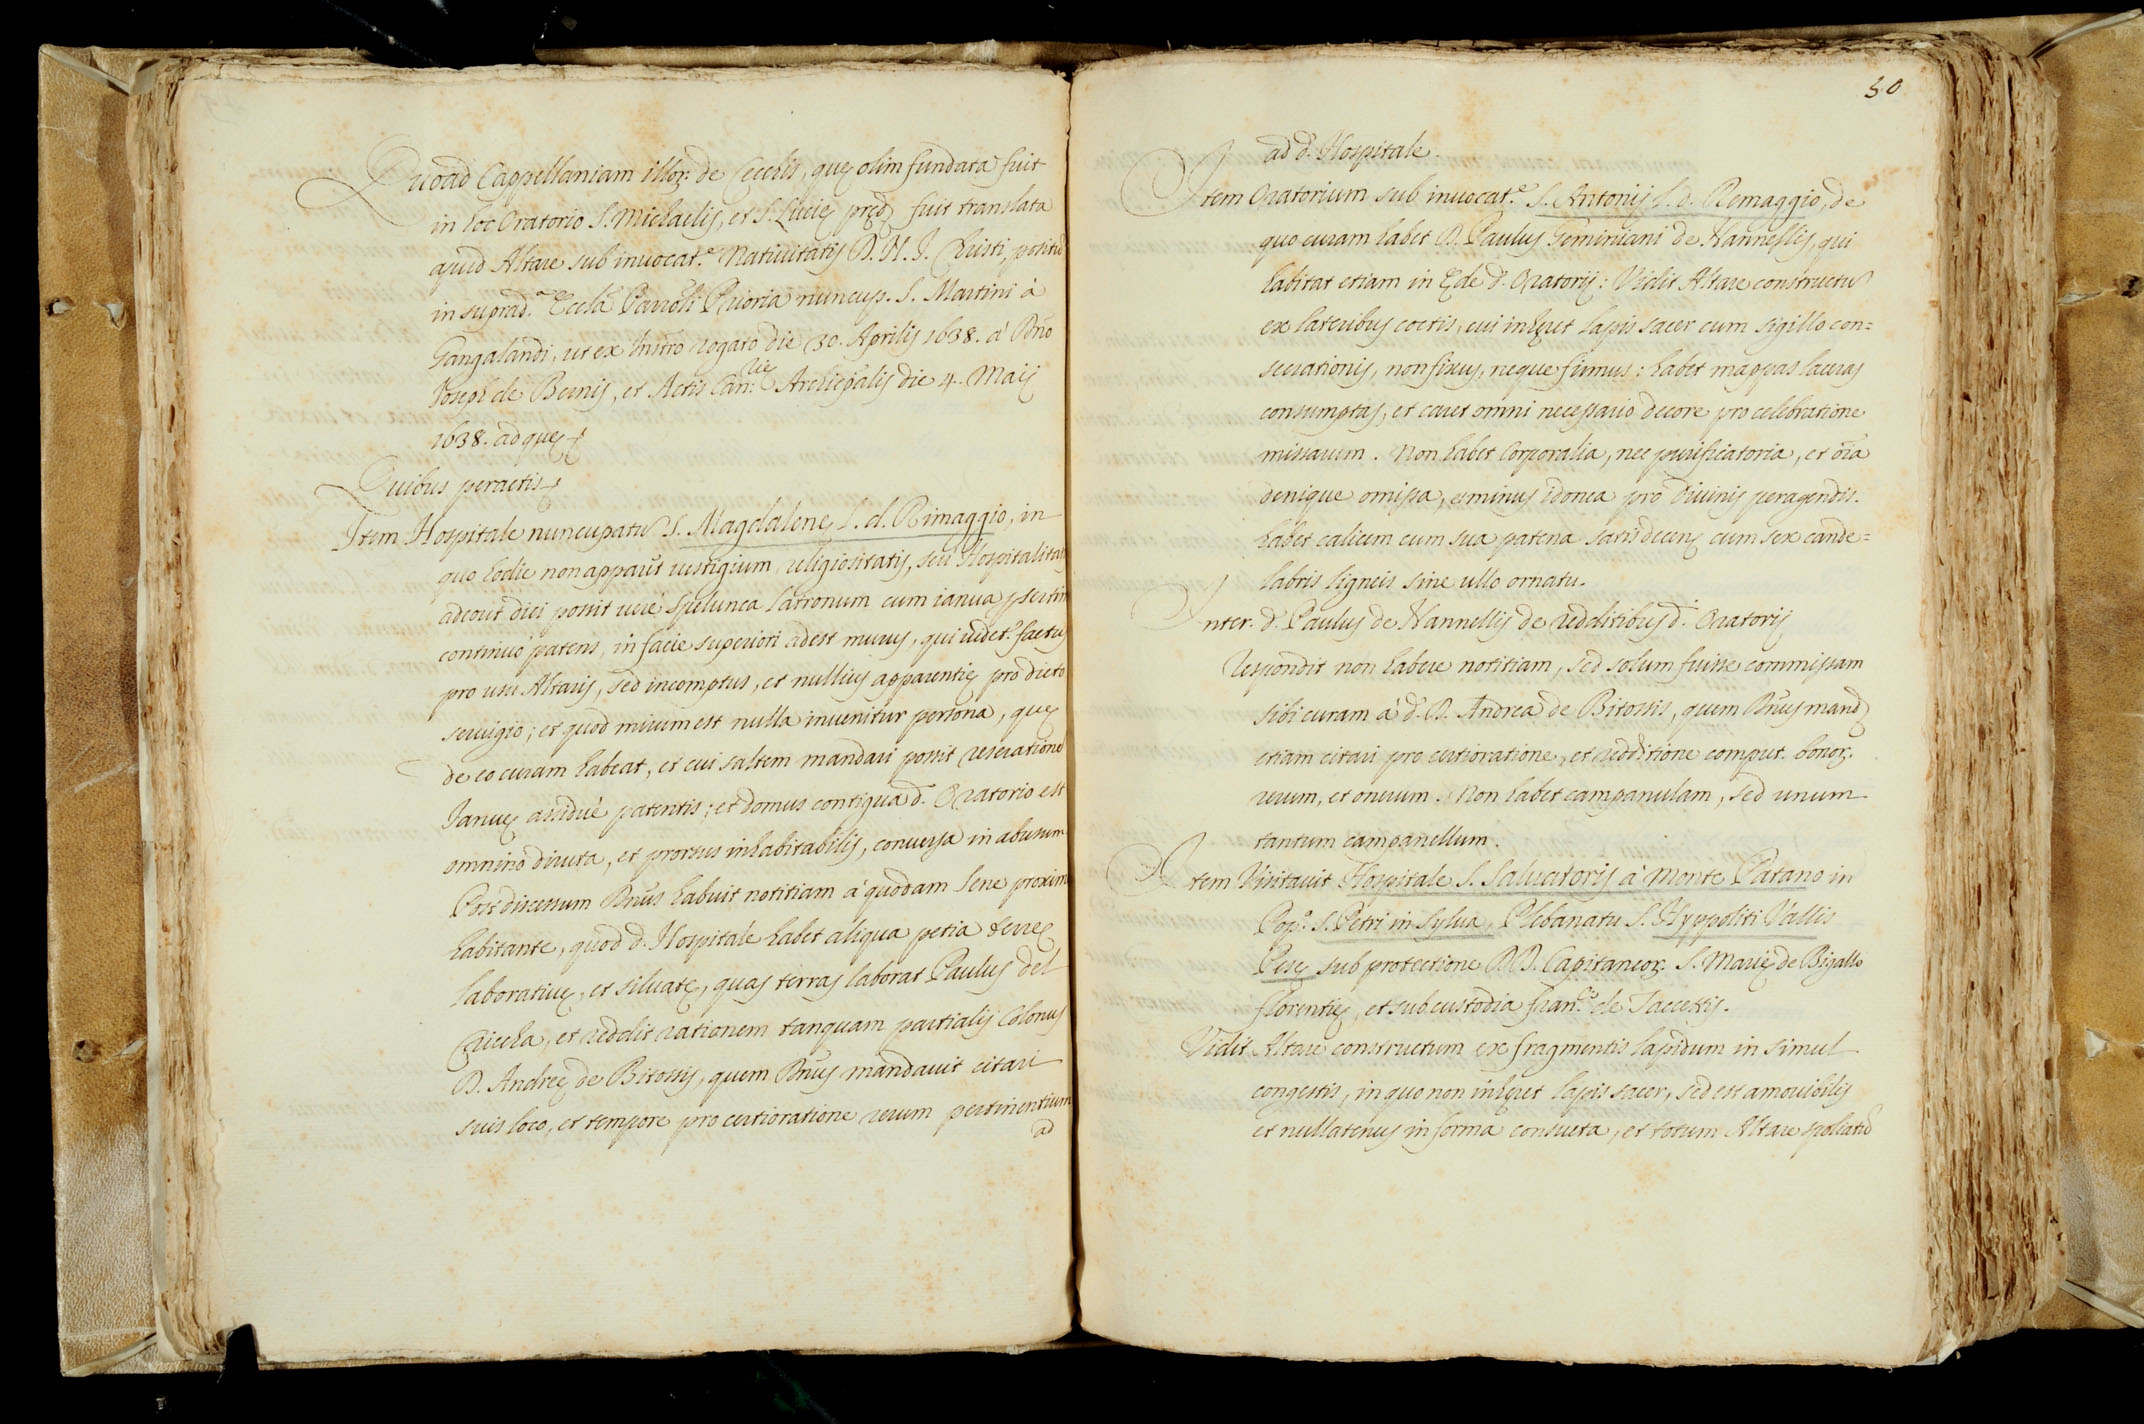 Quoad Cappellaniam illor. de Ceccħis, quę olim fundata fuit
in hoc Oratorio S. Michaelis, et S. Lucię pręd. fuit translata
apud Altare sub invocat.e Nativitatis D. N. J. Christi, positũ
in suprad.a Eccl̃a Parroli Prioria nuncup. S. Martini à
Gangalandi, ut ex Instro rogato die 30. Aprilis 1638. à Dño
Joseph de Bernis, et Actis Can:rię Archiepalis die 4. Maij
1638. ad quę &
Quibus peractis &
Item Hospitale nuncupatũ S. Magdalenę l. d. Rimaggio, in
quo hodie non apparet vestigium religiositatis, seu Hospitalitatis
adeout dici possit verè spelunca latronum cum ianua
continuò patens, in facie superiori adest murus, qui videt.r factus
pro usu Altaris, sed incomptus, et nullius apparentię pro dicto
servigio; et quod mirum est nulla invenitur persona, quę
de eo curam habeat, et cui saltem mandari possit reserationẽ
Ianuę assiduè patentis; et domus contigua d. Oratorio est
omnino diruta, et prorsus inhabitabilis, conversa in abusum
Post discessum Dñus habuit notitiam à quodam Sene proximè
habitante, quod d. Hospitale habet aliqua petia terrę
laboratiuę, et siluatę, quas terras laborat Paulus del
Cricha, et reddit rationem tanquam partialis Colonus
D. Andreę de Bitossis, quem Dñus mandavit citari
suis loco, et tempore pro certioratione rerum pertinentium
ad
50
ad d. Hospitale.
Item Oratorium sub invocat.e S. Antonij l. d. Remaggio, de
quo curam habet D. Paulus Geminiani de Nannellis, qui
habitat etiam in Ęde d. Oratorij: Vidit Altare constructũ
ex lateribus coctis, cui inhęret lapis sacer cum sigillo con=
secrationis, non fixus, neque firmus: habet mappas laceras
consumptas, et caret omni necessario decore pro celebratione
missarum. Non habet Corporalia, nec purificatoria, et oĩa
denique omissa, et minus idonea pro Divinis peragendis.
habet calicem cum sua patena satis decens cum sex cande=
labris ligneis sine ullo ornatu.
Inter. d. Paulus de Nannellis de redditibus d. Oratorij
Respondit non habere notitiam, sed solum fuisse commissam
sibi curam à d. D. Andrea de Bitossis, quem Dñus mand.
etiam citari pro certioratione, et redditione comput. bonor.
rerum, et onerum. Non habet campanulam, sed unum
tantum campanellum.
Item Visitavit Hospitale S. Salvatoris à Monte Patano in
Pop.o S. Petri in Sylva, Plebanatu S. Hyppoliti Vallis
Pesę sub protectione D.D. Capitaneor. S. Marię de Bigallo
Florentię, et sub custodia Fran.ci de Taccettis.
Vidit Altare constructum ex fragmentis lapidum in simul
congestis, in quo non inhęret lapis sacer, sed est amovibilis
et nullatenus in forma consueta, et totum Altare spoliatũ